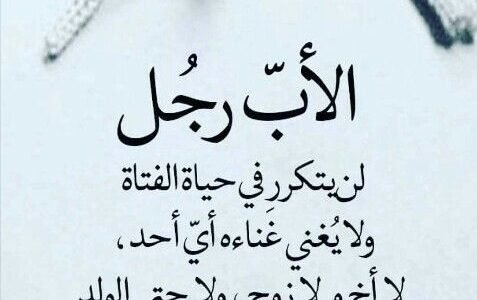 الأبّ رجُل
لن يتكرر في حياة الفتاة
ولا يُغني غَناءه أيّ أحد،
لا أخ ولا زوج ولا حتى الولد